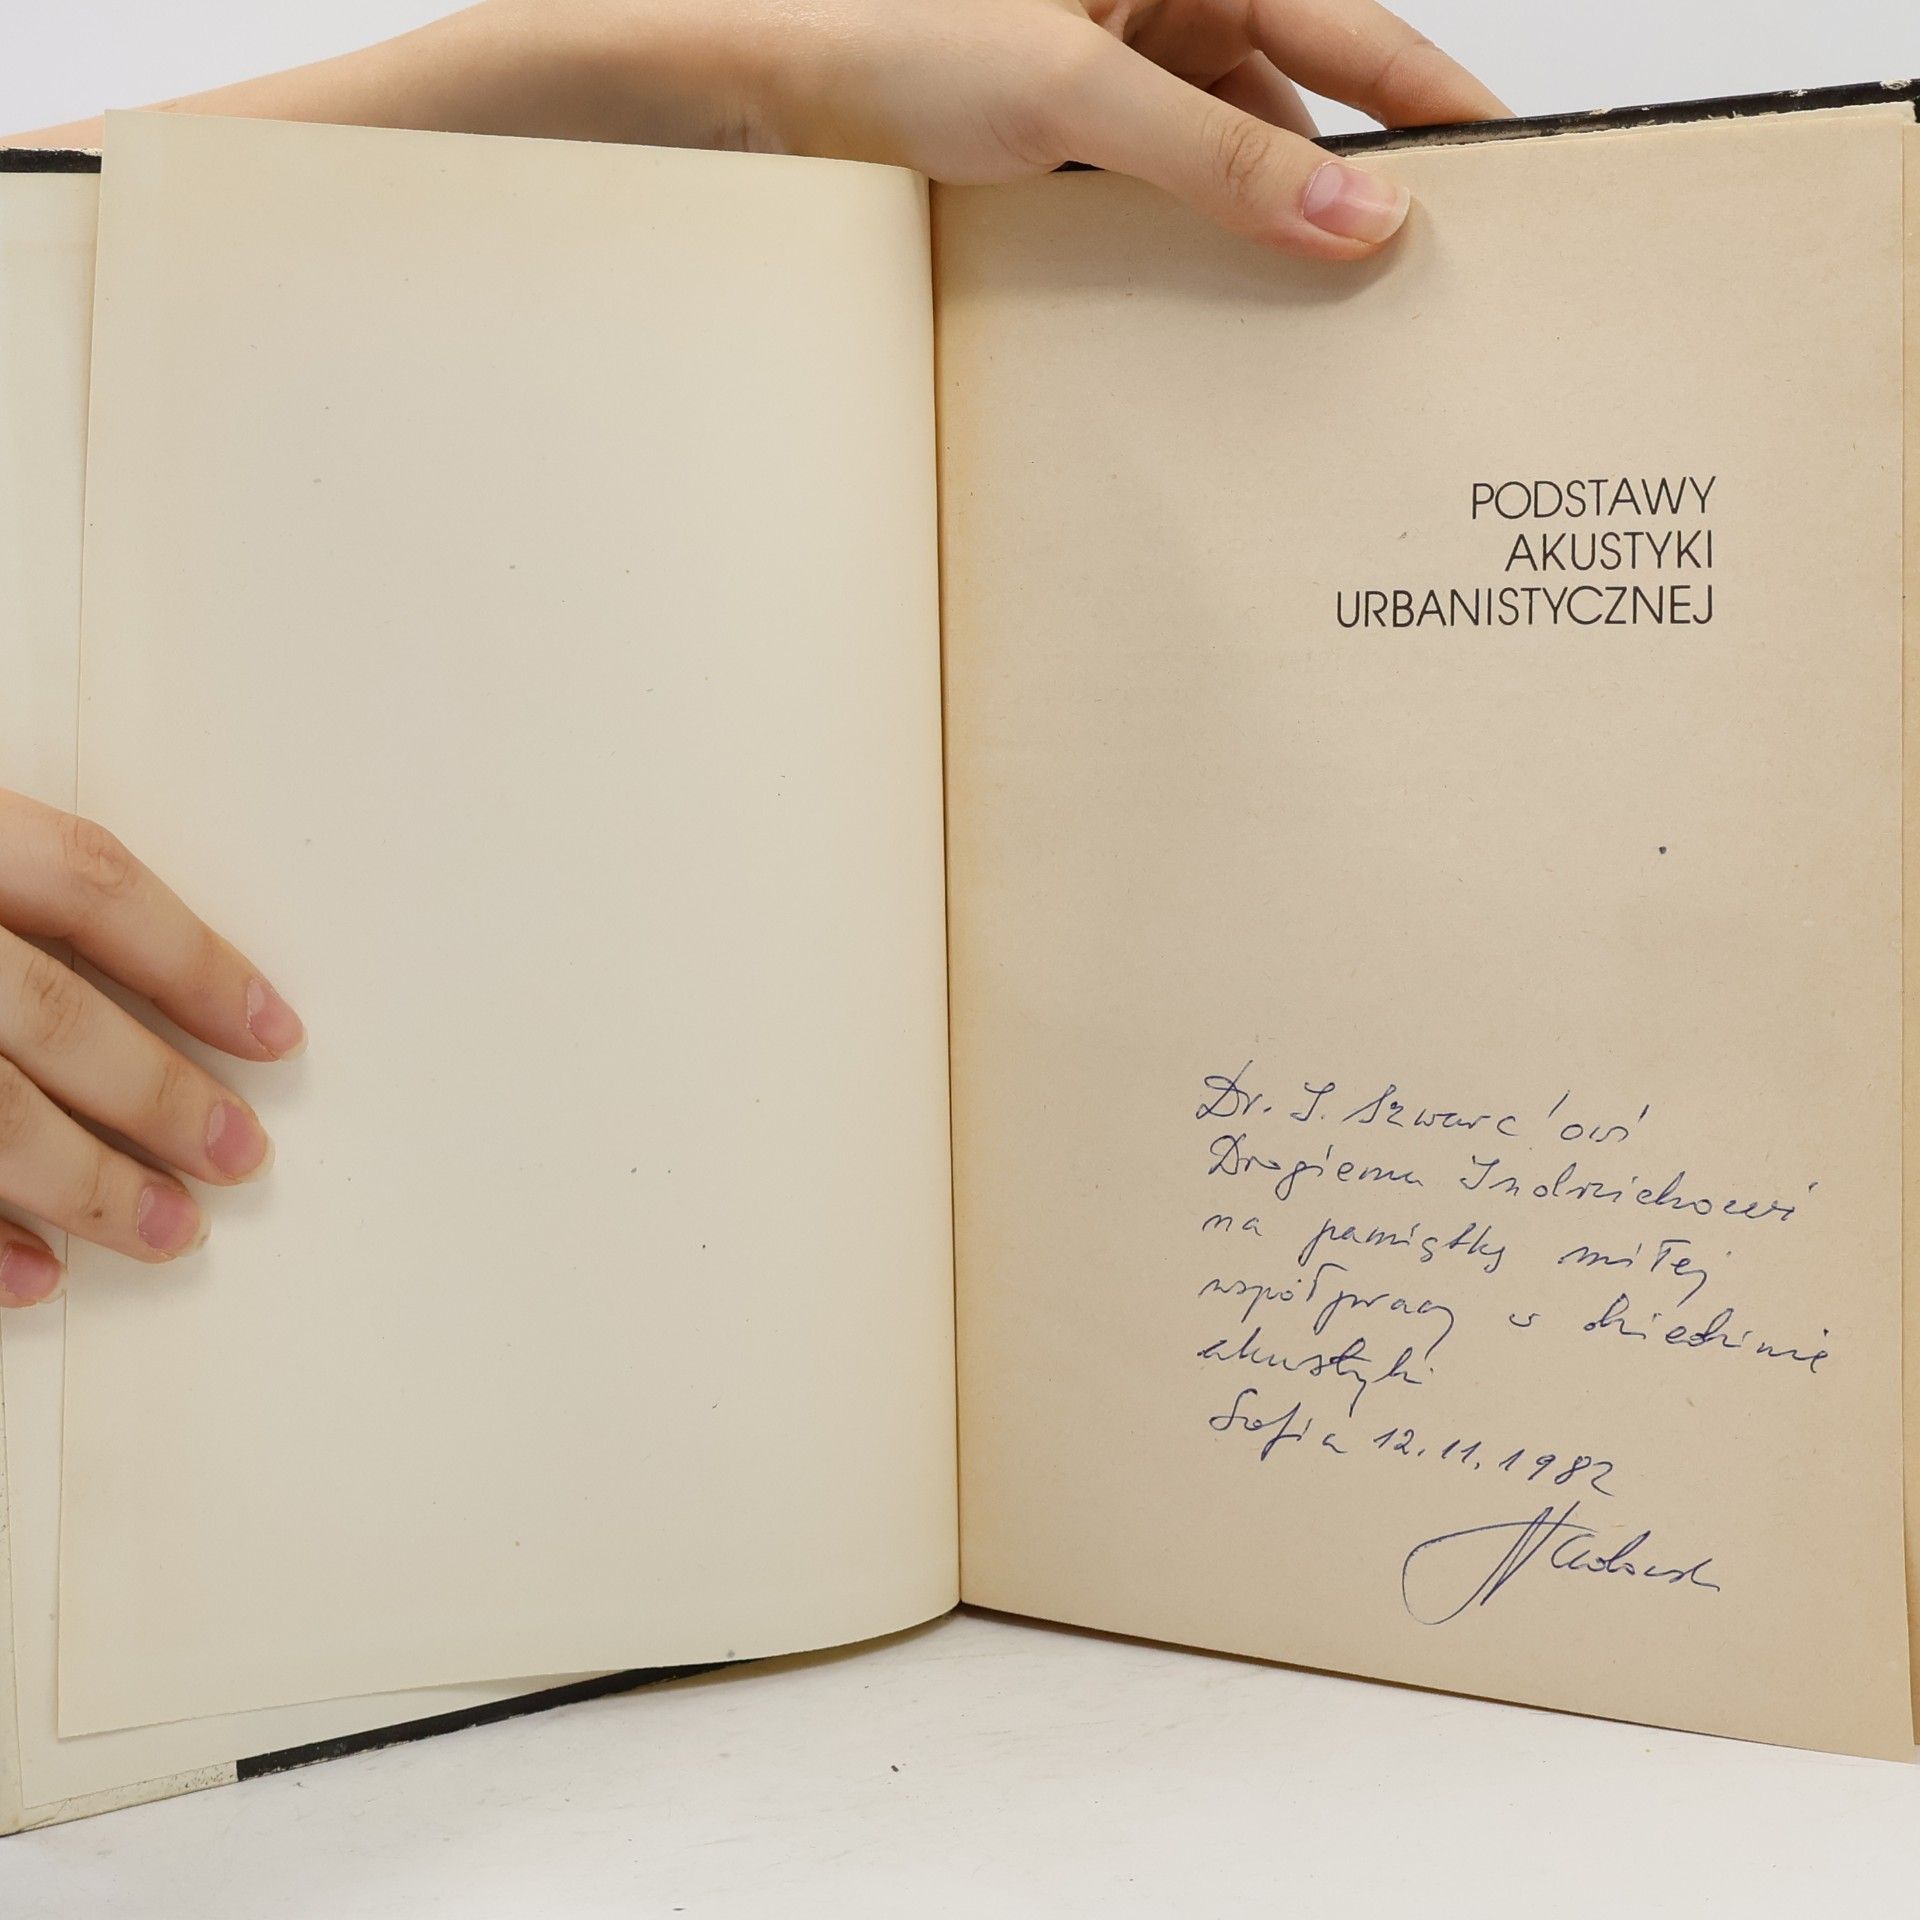 PODSTAWY
AKUSTYKI
URBANISTYCZNEJ
Dr. J. Szwarc'owi
Drogiemu Indrzichowi
na pamiątkę miłej
współpracy w dziedzinie
akustyki
Sofia 12.11.1982